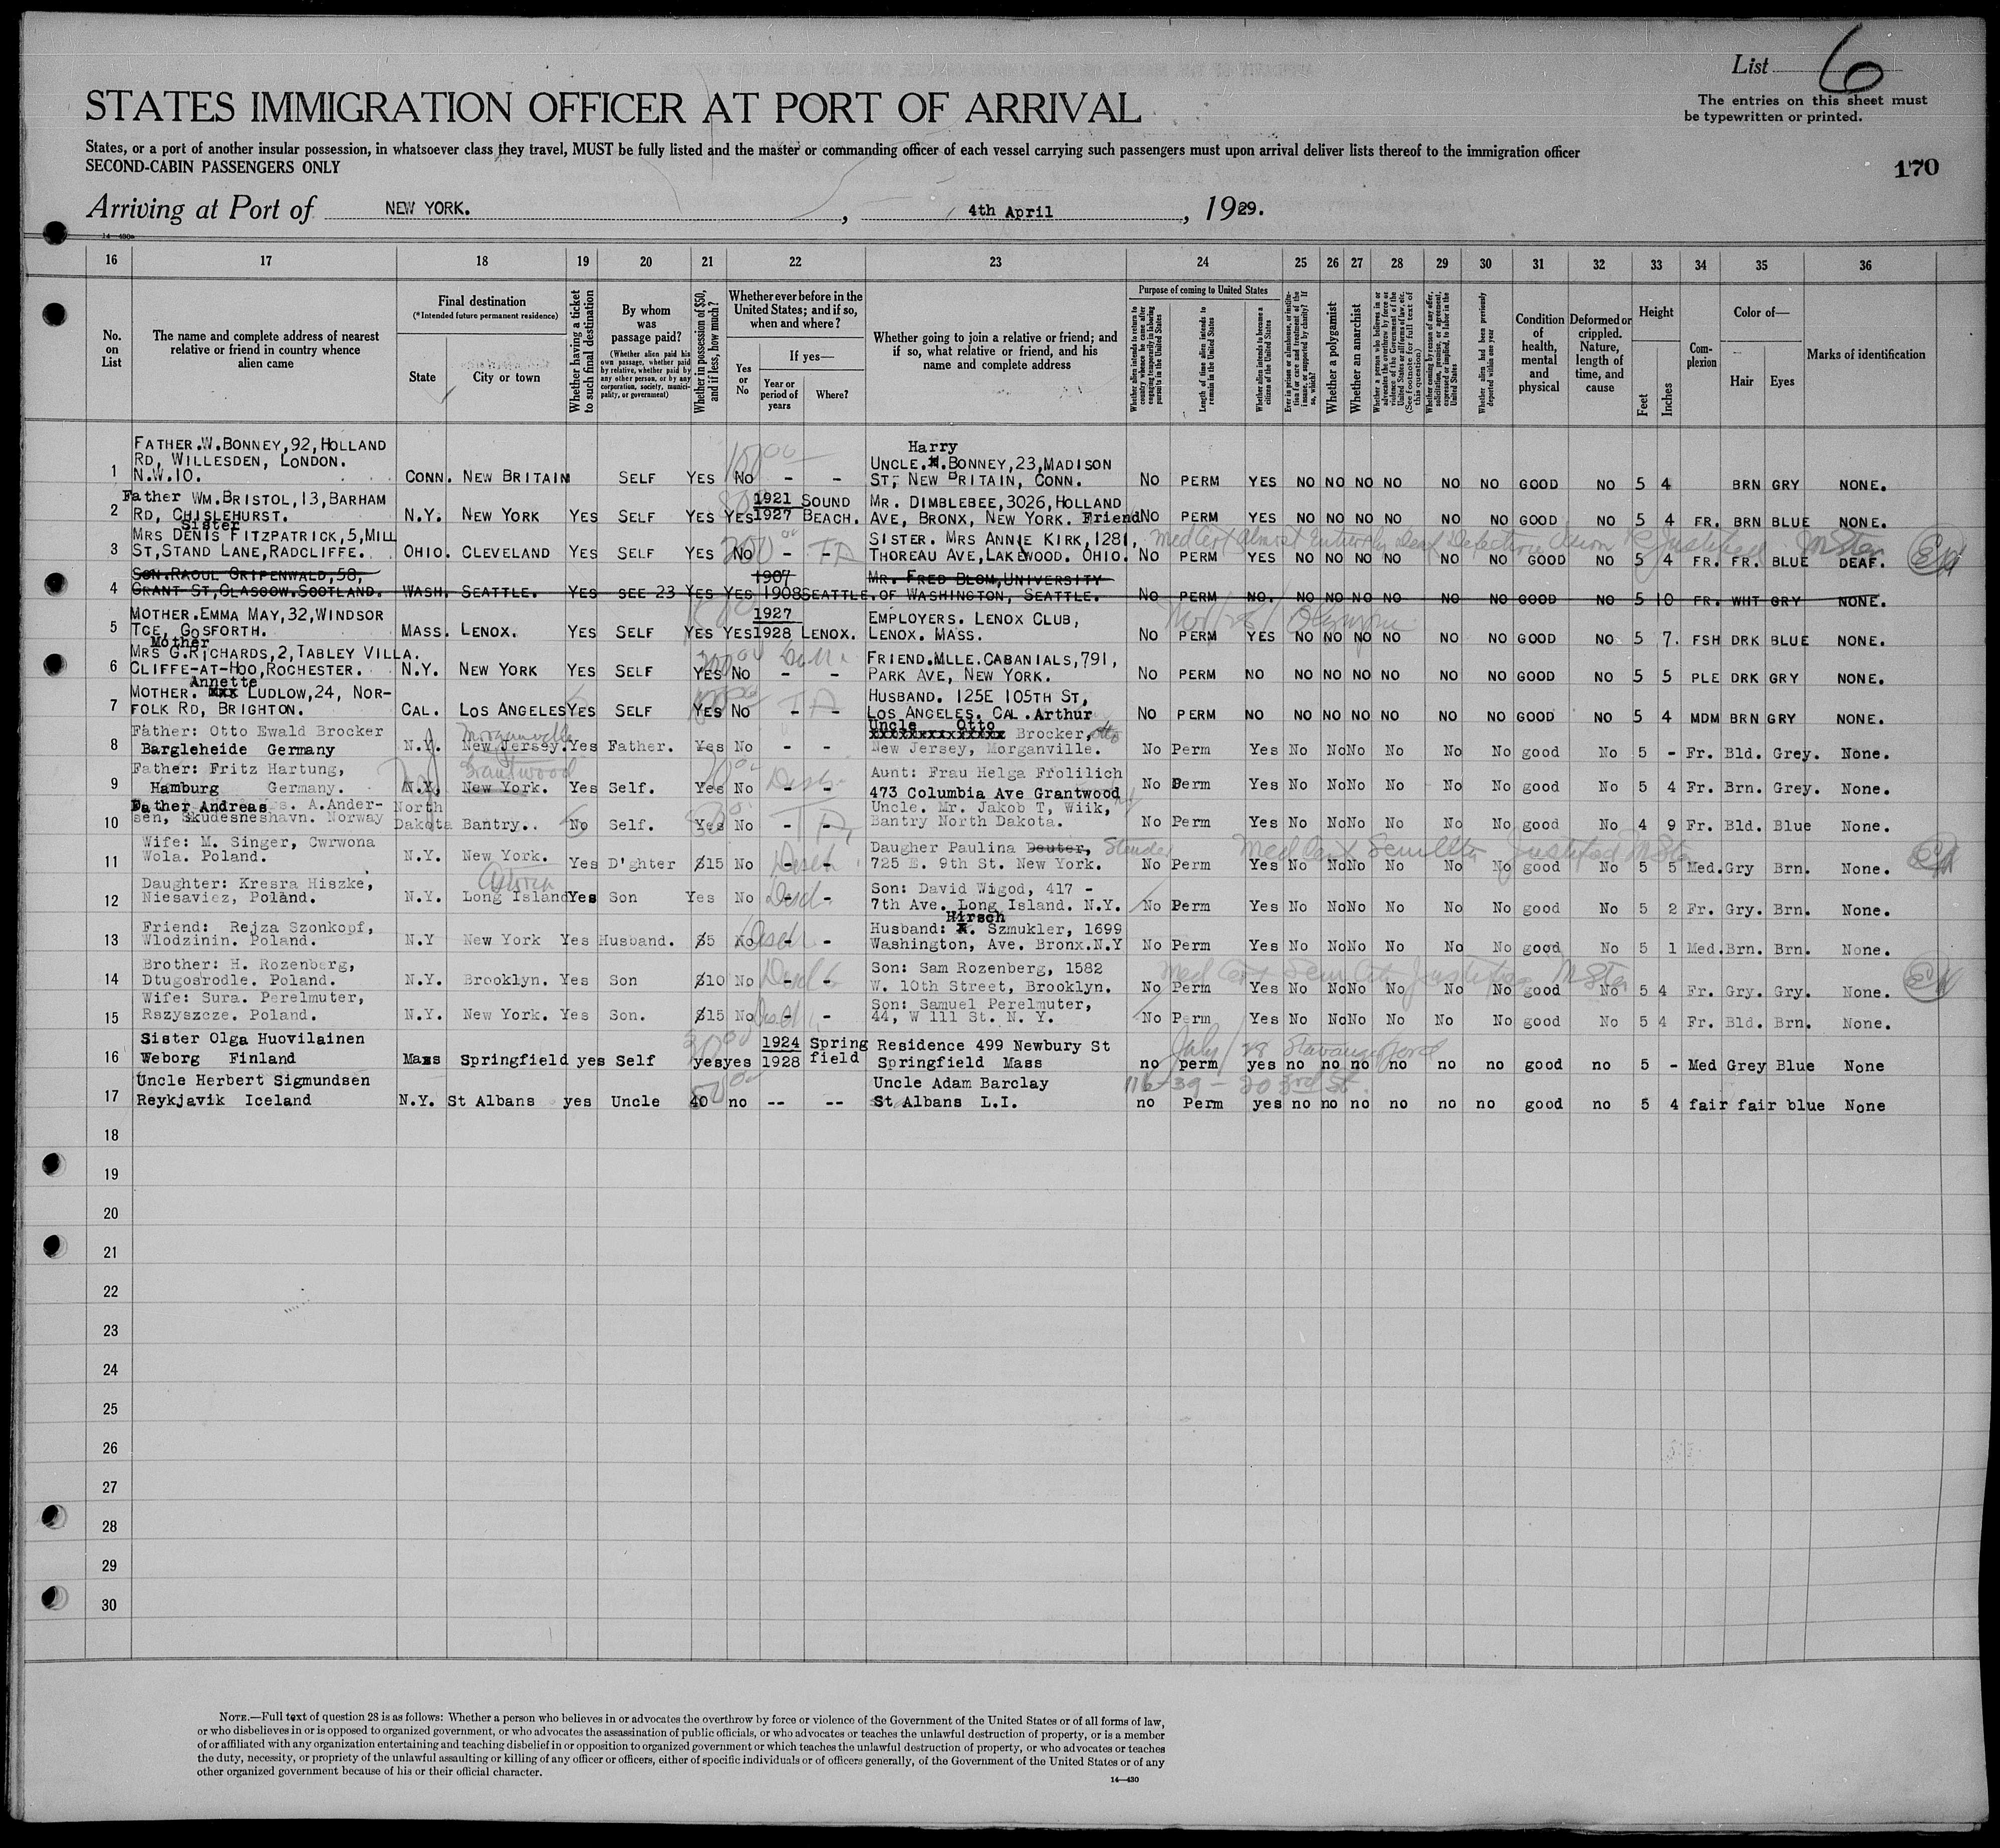 List 6
The entries on this sheet must
be typewritten or printed.
STATES IMMIGRATION OFFICER AT PORT OF ARRIVAL
States, or a port of another insular possession, in whatsoever class they travel, MUST be fully listed and the master or commanding officer of each vessel carrying such passengers must upon arrival deliver lists thereof to the immigration officer
SECOND-CABIN PASSENGERS ONLY
170
Arriving at Port of NEW YORK. , 4th April , 1929.
14-430
16 17 18 19 20 21 22 23 24 25 26 27 28 29 30 31 32 33 34 35 36
No. on List
The name and complete address of nearest relative or friend in country whence alien came
Final destination
(*Intended future permanent residence)
State
City or town
Whether having a ticket to such final destination
By whom was passage paid?
(Whether alien paid his own passage, whether paid by relative, whether paid by any other person, or by any corporation, society, municipality, or government)
Whether in possession of $50, and if less, how much?
Whether ever before in the United States; and if so, when and where?
Yes or No
If yes—
Year or period of years
Where?
Whether going to join a relative or friend; and if so, what relative or friend, and his name and complete address
Purpose of coming to United States
Whether alien intends to return to country whence he came after engaging temporarily in laboring pursuits in the United States
Length of time alien intends to remain in the United States
Whether alien intends to become a citizen of the United States
Ever in prison or almshouse, or institution for care and treatment of the insane, or supported by charity? If so, which?
Whether a polygamist
Whether an anarchist
Whether a person who believes in or advocates the overthrow by force or violence of the Government of the United States or all forms of law, etc. (See footnote for full text of this question)
Whether coming by reason of any offer, solicitation, promise, or agreement, expressed or implied, to labor in the United States
Whether alien had been previously deported within one year
Condition of health, mental and physical
Deformed or crippled. Nature, length of time, and cause
Height
Feet
Inches
Complexion
Color of—
Hair
Eyes
Marks of identification
1 FATHER.W.BONNEY,92,HOLLAND RD, WILLESDEN, LONDON. N.W.10. CONN. NEW BRITAIN SELF YES NO - - Harry UNCLE.H.BONNEY,23,MADISON ST, NEW BRITAIN, CONN. NO PERM YES NO NO NO NO NO NO GOOD NO 5 4 BRN GRY NONE.
2 Father WM.BRISTOL,13,BARHAM RD, CHISLEHURST. N.Y. NEW YORK YES SELF YES YES 1921 1927 SOUND BEACH. MR. DIMBLEBEE,3026,HOLLAND AVE, BRONX, NEW YORK. Friend NO PERM YES NO NO NO NO NO NO GOOD NO 5 4 FR. BRN BLUE NONE.
3 Sister MRS DENIS FITZPATRICK,5,MILL ST,STAND LANE,RADCLIFFE. OHIO. CLEVELAND YES SELF YES NO - - SISTER. MRS ANNIE KIRK,1281, THOREAU AVE,LAKEWOOD. OHIO. NO PERM YES NO NO NO NO NO NO GOOD NO 5 4 FR. FR. BLUE DEAF.
4 SON.RAOUL GRIPENWALD,58, GRANT ST,GLASGOW.SCOTLAND. WASH. SEATTLE. YES SEE 23 YES YES 1907 1908 SEATTLE. MR. FRED BLOM,UNIVERSITY OF WASHINGTON, SEATTLE. NO PERM NO. NO NO NO NO NO NO GOOD NO 5 10 FR. WHT GRY NONE.
5 MOTHER.EMMA MAY,32,WINDSOR TCE, GOSFORTH. MASS. LENOX. YES SELF YES YES 1927 1928 LENOX. EMPLOYERS. LENOX CLUB, LENOX. MASS. NO PERM YES NO NO NO NO NO NO GOOD NO 5 7. FSH DRK BLUE NONE.
6 Mother MRS G.RICHARDS,2,TABLEY VILLA. CLIFFE-AT-HOO,ROCHESTER. N.Y. NEW YORK YES SELF YES NO - - FRIEND.MLLE.CABANIALS,791, PARK AVE, NEW YORK. NO PERM NO NO NO NO NO NO NO GOOD NO 5 5 PLE DRK GRY NONE.
7 Annette MOTHER. LUDLOW,24, NORFOLK RD, BRIGHTON. CAL. LOS ANGELES YES SELF YES NO - - HUSBAND. 125E 105TH ST, LOS ANGELES. CAL. Arthur NO PERM NO NO NO NO NO NO NO GOOD NO 5 4 MDM BRN GRY NONE.
8 Father: Otto Ewald Brocker Bargleheide Germany N.Y. New Jersey. Morganville Yes Father. Yes No - - Uncle Otto Brocker, Otto New Jersey, Morganville. No Perm Yes No No No No No No good No 5 - Fr. Bld. Grey. None.
9 Father: Fritz Hartung, Hamburg Germany. N.Y, New York. Grantwood Yes Self. Yes No - - Aunt: Frau Helga Frolilich 473 Columbia Ave Grantwood No Perm Yes No No No No No No good No 5 4 Fr. Brn. Grey. None.
10 Father Andreas A.Andersen, Skudesneshavn. Norway North Dakota Bantry.. No Self. Yes No - - Uncle. Mr. Jakob T, Wiik, Bantry North Dakota. No Perm Yes No No No No No No good No 4 9 Fr. Bld. Blue None.
11 Wife: M. Singer, Cwrwona Wola. Poland. N.Y. New York. Yes D'ghter $15 No - - Daugher Paulina Deuter, 725 E. 9th St. New York. No Perm Yes No No No No No No good No 5 5 Med. Gry Brn. None.
12 Daughter: Kresra Hiszke, Niesaviez, Poland. N.Y. Astoria Long Island Yes Son Yes No - - Son: David Wigod, 417 - 7th Ave. Long Island. N.Y. No Perm Yes No No No No No No good No 5 2 Fr. Gry. Brn. None.
13 Friend: Rejza Szonkopf, Wlodzinin. Poland. N.Y New York Yes Husband. $5 No - - Hirsch Husband: Szmukler, 1699 Washington, Ave. Bronx.N.Y No Perm Yes No No No No No No good No 5 1 Med. Brn. Brn. None.
14 Brother: H. Rozenberg, Dtugosrodle. Poland. N.Y. Brooklyn. Yes Son $10 No - - Son: Sam Rozenberg, 1582 W. 10th Street, Brooklyn. No Perm Yes No No No No No No good No 5 4 Fr. Gry. Gry. None.
15 Wife: Sura. Perelmuter, Rszyszcze. Poland. N.Y. New York. Yes Son. $15 No - - Son: Samuel Perelmuter, 44, W 111 St. N. Y. No Perm Yes No No No No No No good No 5 4 Fr. Bld. Brn. None.
16 Sister Olga Huovilainen Weborg Finland Mass Springfield yes Self yes yes 1924 1928 Spring field Residence 499 Newbury St Springfield Mass no perm yes no no no no no no good no 5 - Med Grey Blue None
17 Uncle Herbert Sigmundsen Reykjavik Iceland N.Y. St Albans yes Uncle 40 no -- -- Uncle Adam Barclay St Albans L.I. 116-39 - 203rd St. no Perm yes no no no no no no good no 5 4 fair fair blue None
18
19
20
21
22
23
24
25
26
27
28
29
30
NOTE.—Full text of question 28 is as follows: Whether a person who believes in or advocates the overthrow by force or violence of the Government of the United States or of all forms of law,
or who disbelieves in or is opposed to organized government, or who advocates the assassination of public officials, or who advocates or teaches the unlawful destruction of property, or is a member
of or affiliated with any organization entertaining and teaching disbelief in or opposition to organized government or which teaches the unlawful destruction of property, or who advocates or teaches
the duty, necessity, or propriety of the unlawful assaulting or killing of any officer or officers, either of specific individuals or of officers generally, of the Government of the United States or of any
other organized government because of his or their official character.
14-430